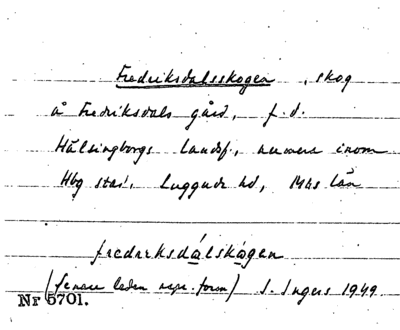 Fredriksdalsskogen, skog
å Fredriksdals gård, f.d.
Hälsingborgs landsf., numera inom
Hbg stad, Luggude hd, Mhs län
fredriksdálskògen
(senare leden repr. form) S. Ingers 1949
Nr 5701.